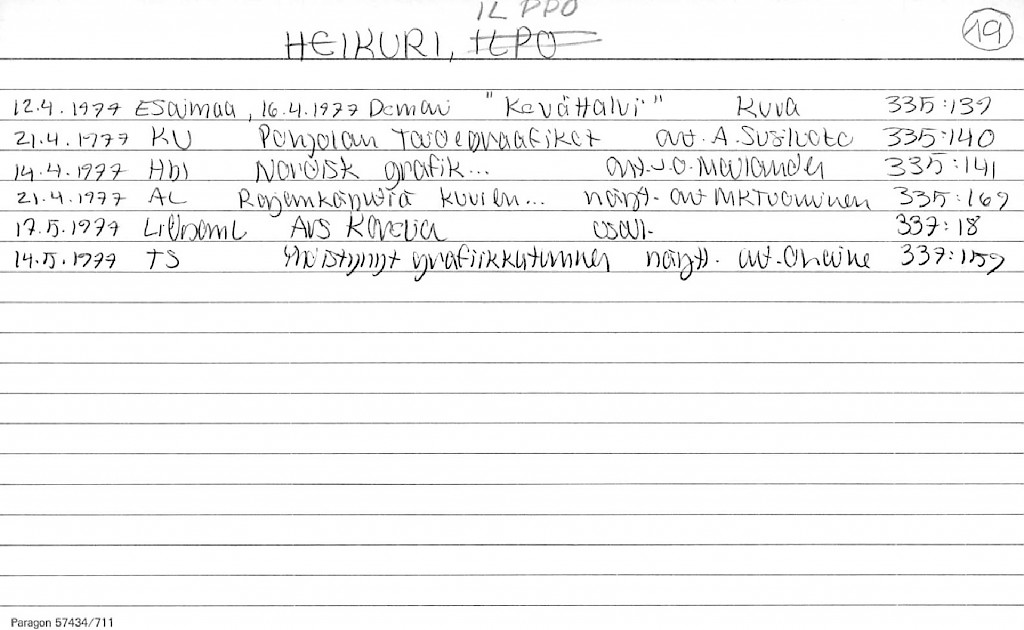 ILPPO
HEIKURI, ILPO
19
12.4.1977 ESaimaa, 16.4.1977 Demari "Kevättalvi" kuva 335:139
21.4.1977 KU Pohjolan Taidegraafikot avt. A. Susiluoto 335:140
14.4.1977 Hbl Nordisk grafik... avt. J.O. Mallander 335:141
21.4.1977 AL kuvien... näytt. avt MKTuominen 335:169
17.5.1977 Ars Karelia 337:18
14.5.1977 TS näytt. avt. OLaine 337:159
Paragon 57434/711